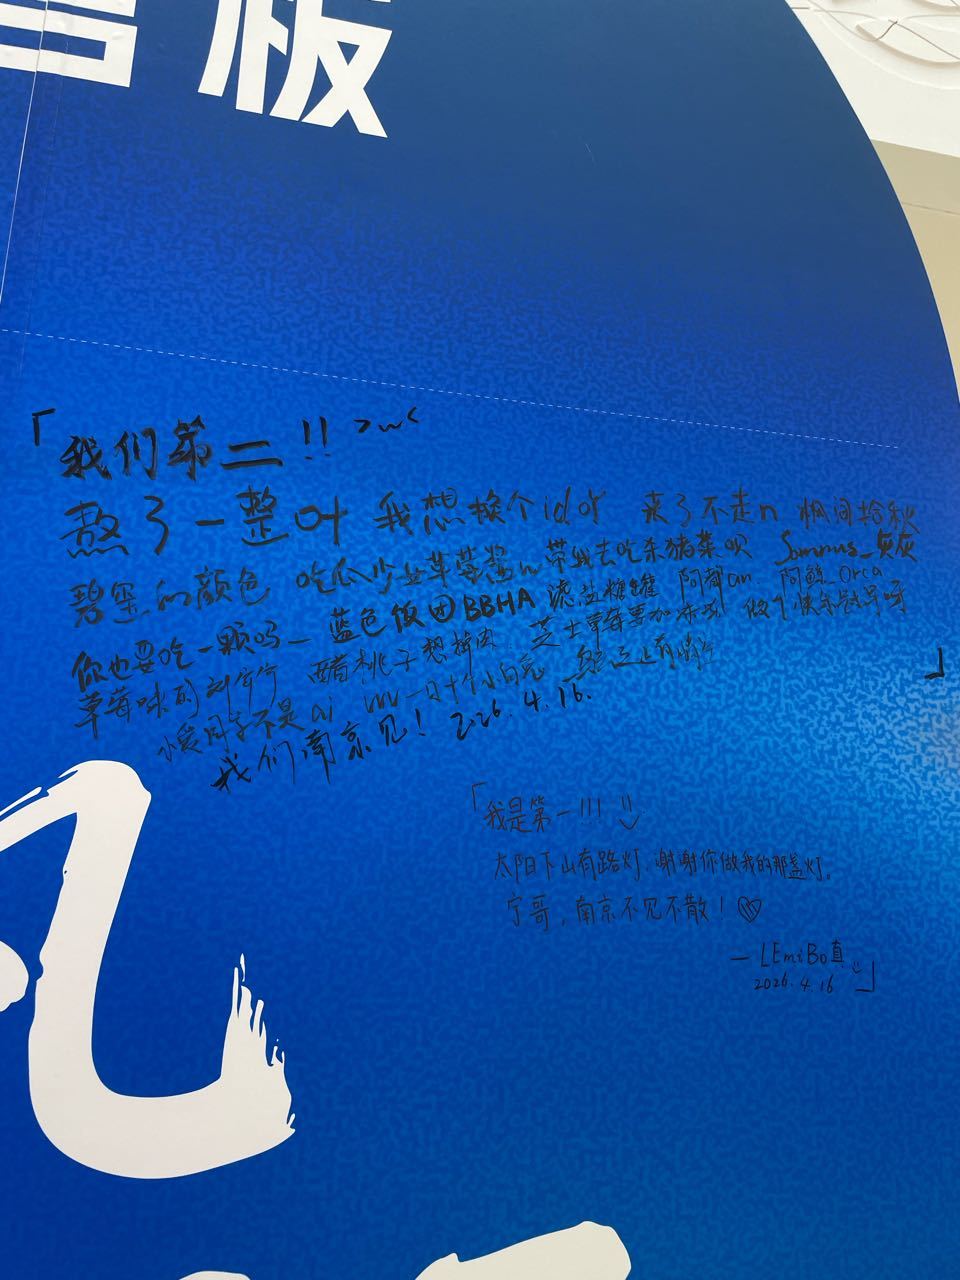 雪板
「我们第二!! >w<
熬了一整叶 我想换个idor 来了不走n 枫间拾秋
碧空的颜色 吃瓜少女草莓酱n 带我去吃杀猪菜呗 Somnus_灰灰
你也要吃一颗吗_ 蓝色饭团BBHA 滤盐糖罐 阿都an 阿鲸_Orca
草莓味的刘宁宁 桃子想掉肉 芝士草莓要加 做个快乐
不是ai 一只
我们南京见! 2026.4.16. 」
「我是第一!!!
太阳下山有路灯,谢谢你做我的那盏灯。
宁哥,南京不见不散!♡
— LEmiBo直
2026.4.16 」